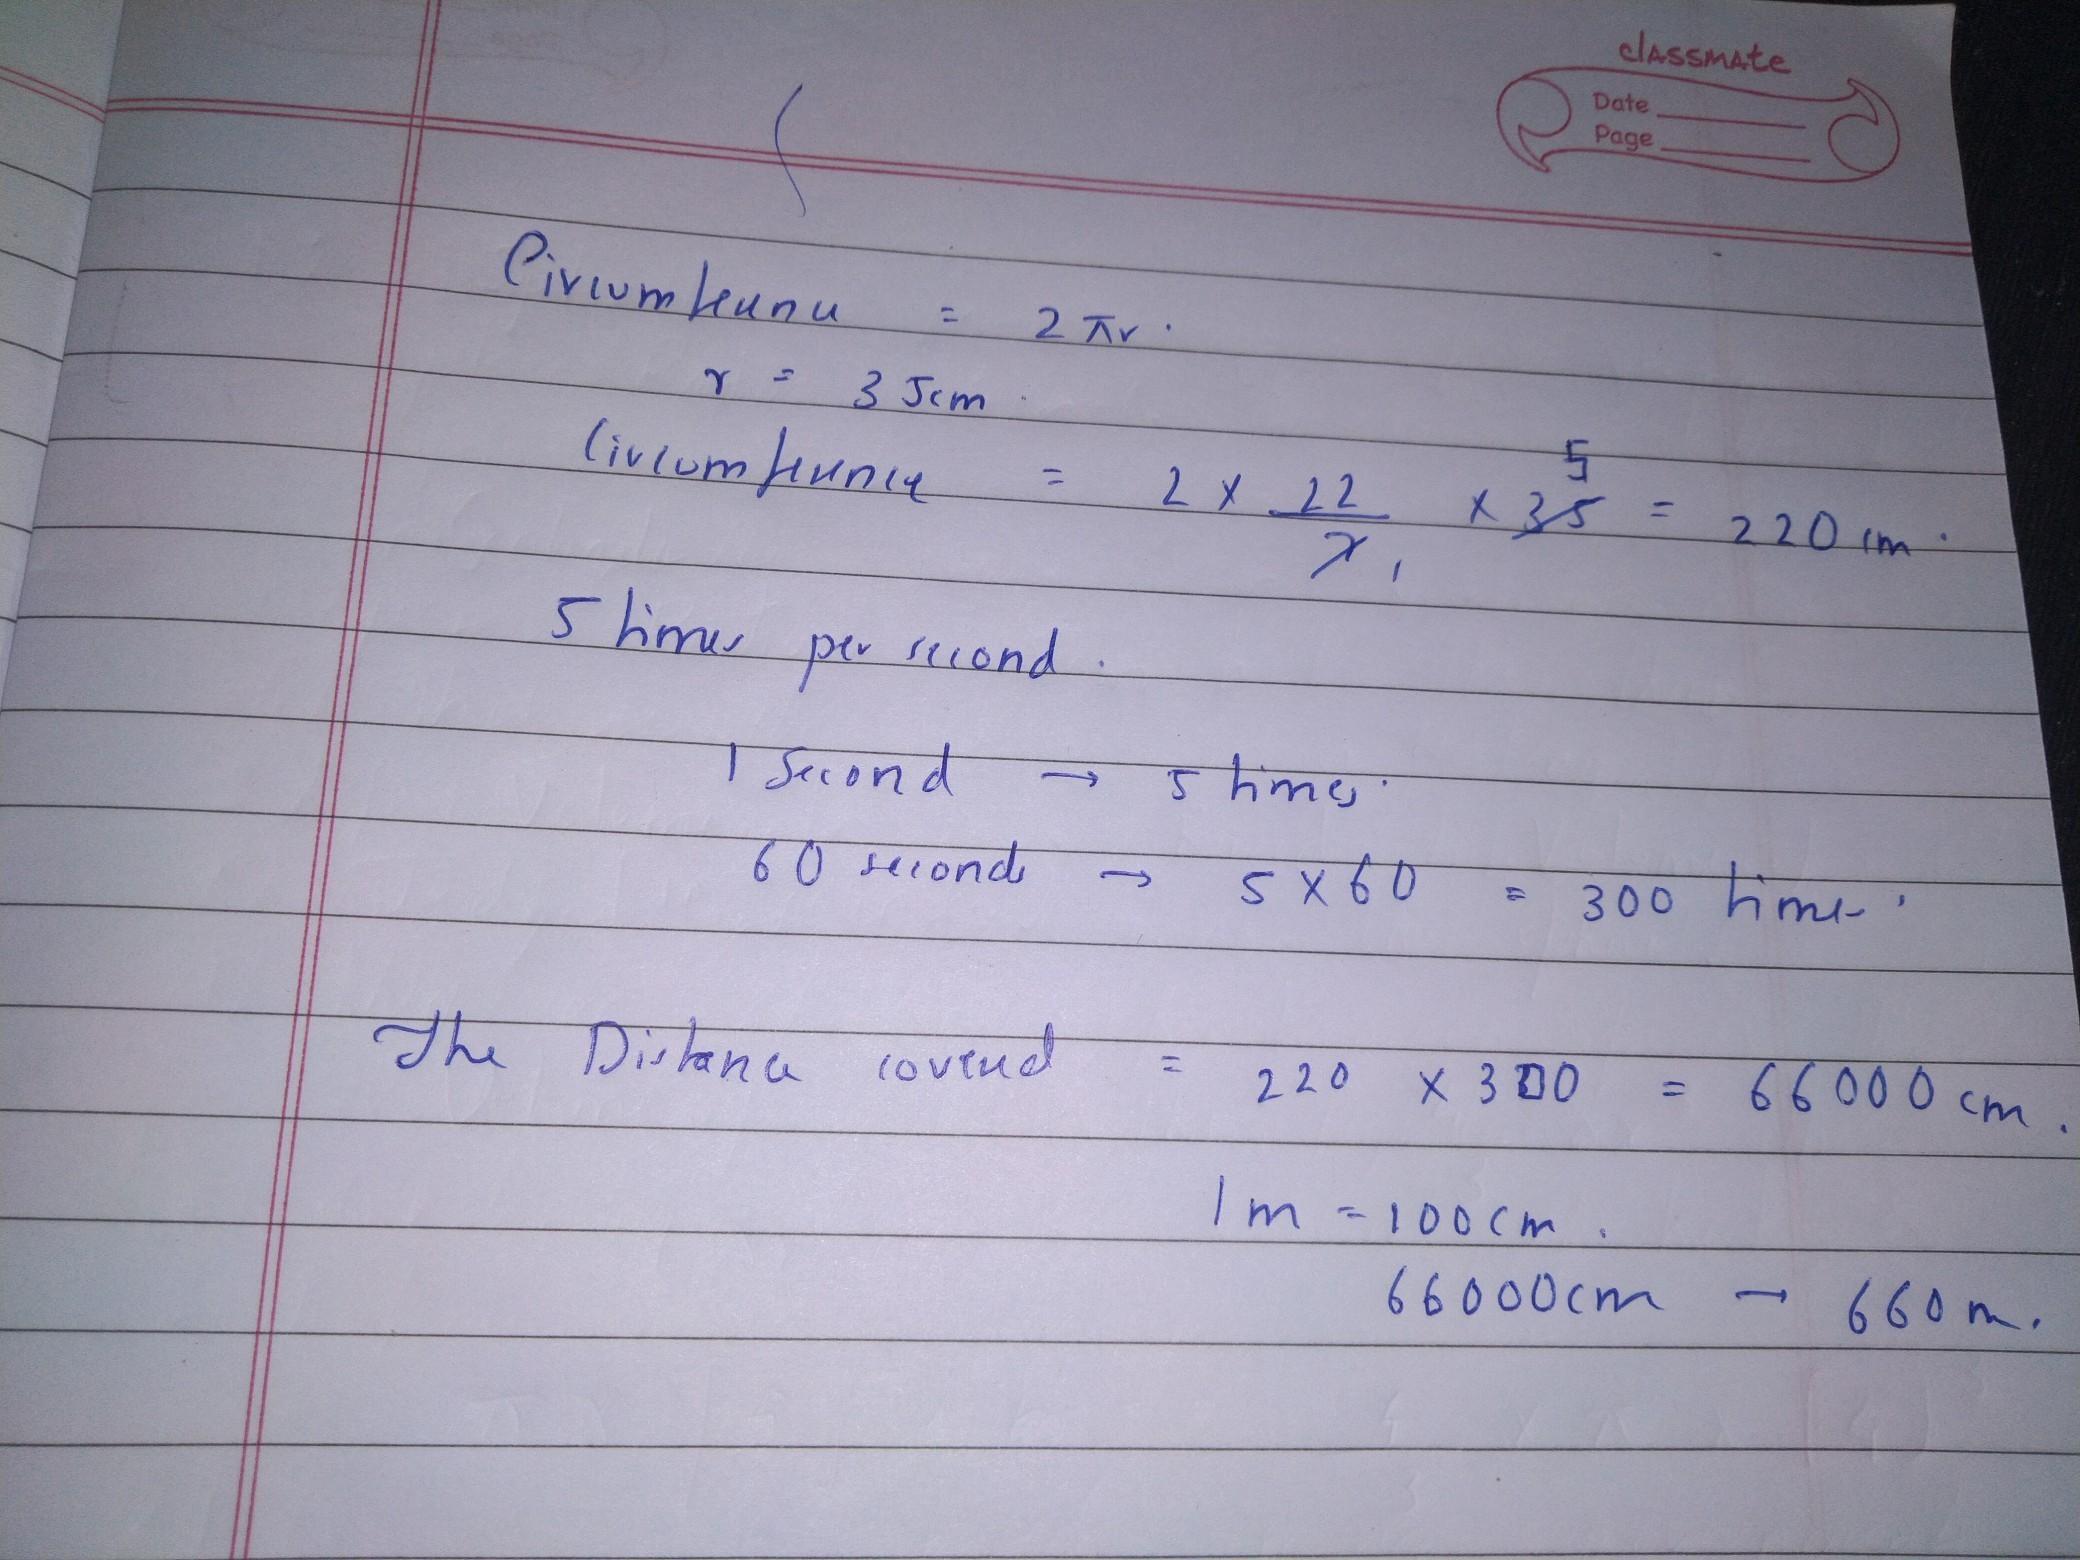 classmate
Date
Page
Circumference = 2πr.
r = 35cm.
Circumference = 2 × 22/7 × 35 = 220 cm.
5
1
5 times per second.
1 Second → 5 times.
60 seconds → 5 × 60 = 300 times.
The Distance covered = 220 × 300 = 66000 cm.
1m = 100cm.
66000cm → 660m.